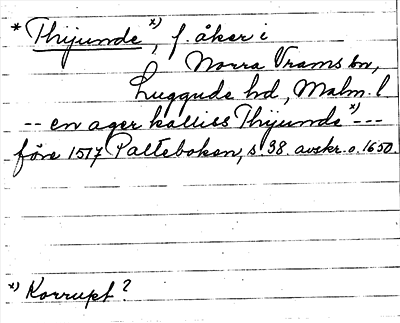 * Thijunde *), f. åker i
Norra Vrams sn,
Luggude hd, Malm. l
-- en ager kalliss Thijunde *) ---
före 1517 Palteboken, s. 38. avskr. o. 1650.
*) Korrupt?